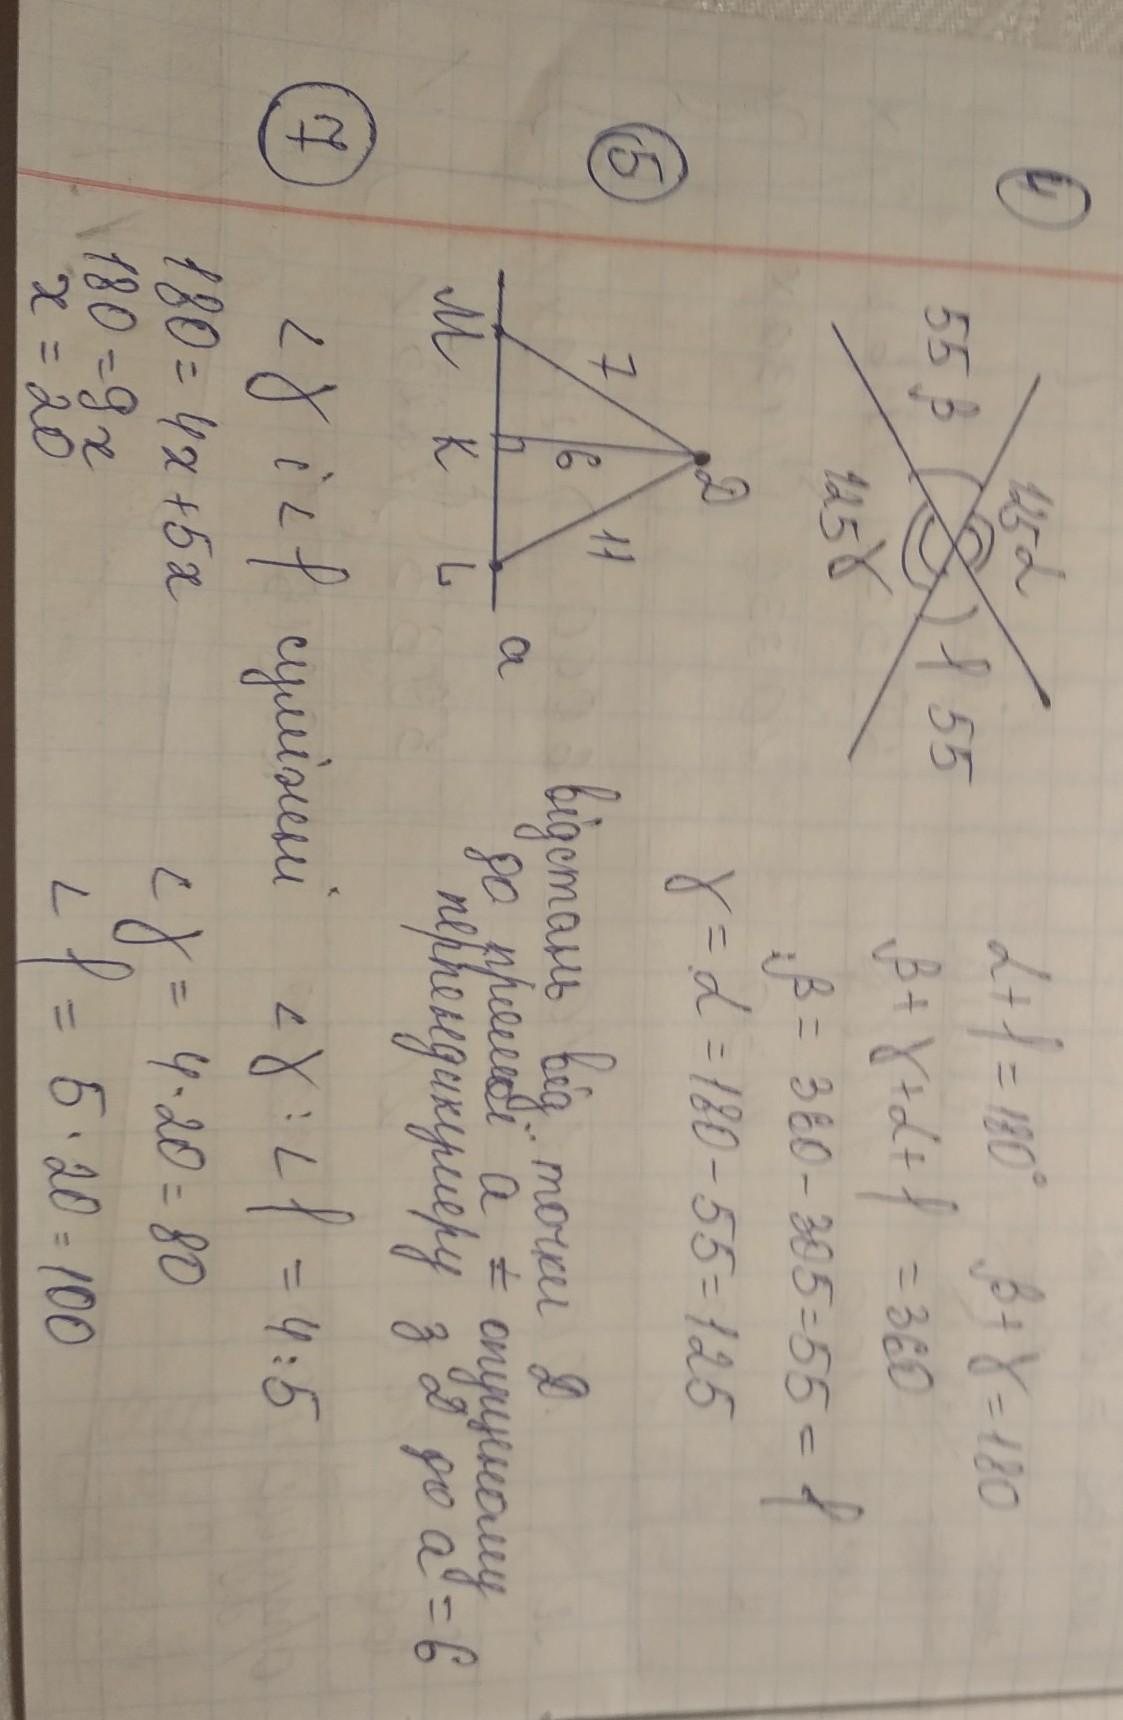 4
55 β
125 α
125 γ
f 55
α + f = 180° β + γ = 180
β + γ + α + f = 360
β = 360 - 305 = 55 = f
γ = α = 180 - 55 = 125
5
D
7
6
11
M K L a
відстань від точки D
до прямої a = опущеному
перпендикуляру з D до a = 6
7
∠γ і ∠f суміжні ∠γ : ∠f = 4:5
180 = 4x + 5x
180 = 9x
x = 20
∠γ = 4·20 = 80
∠f = 5·20 = 100